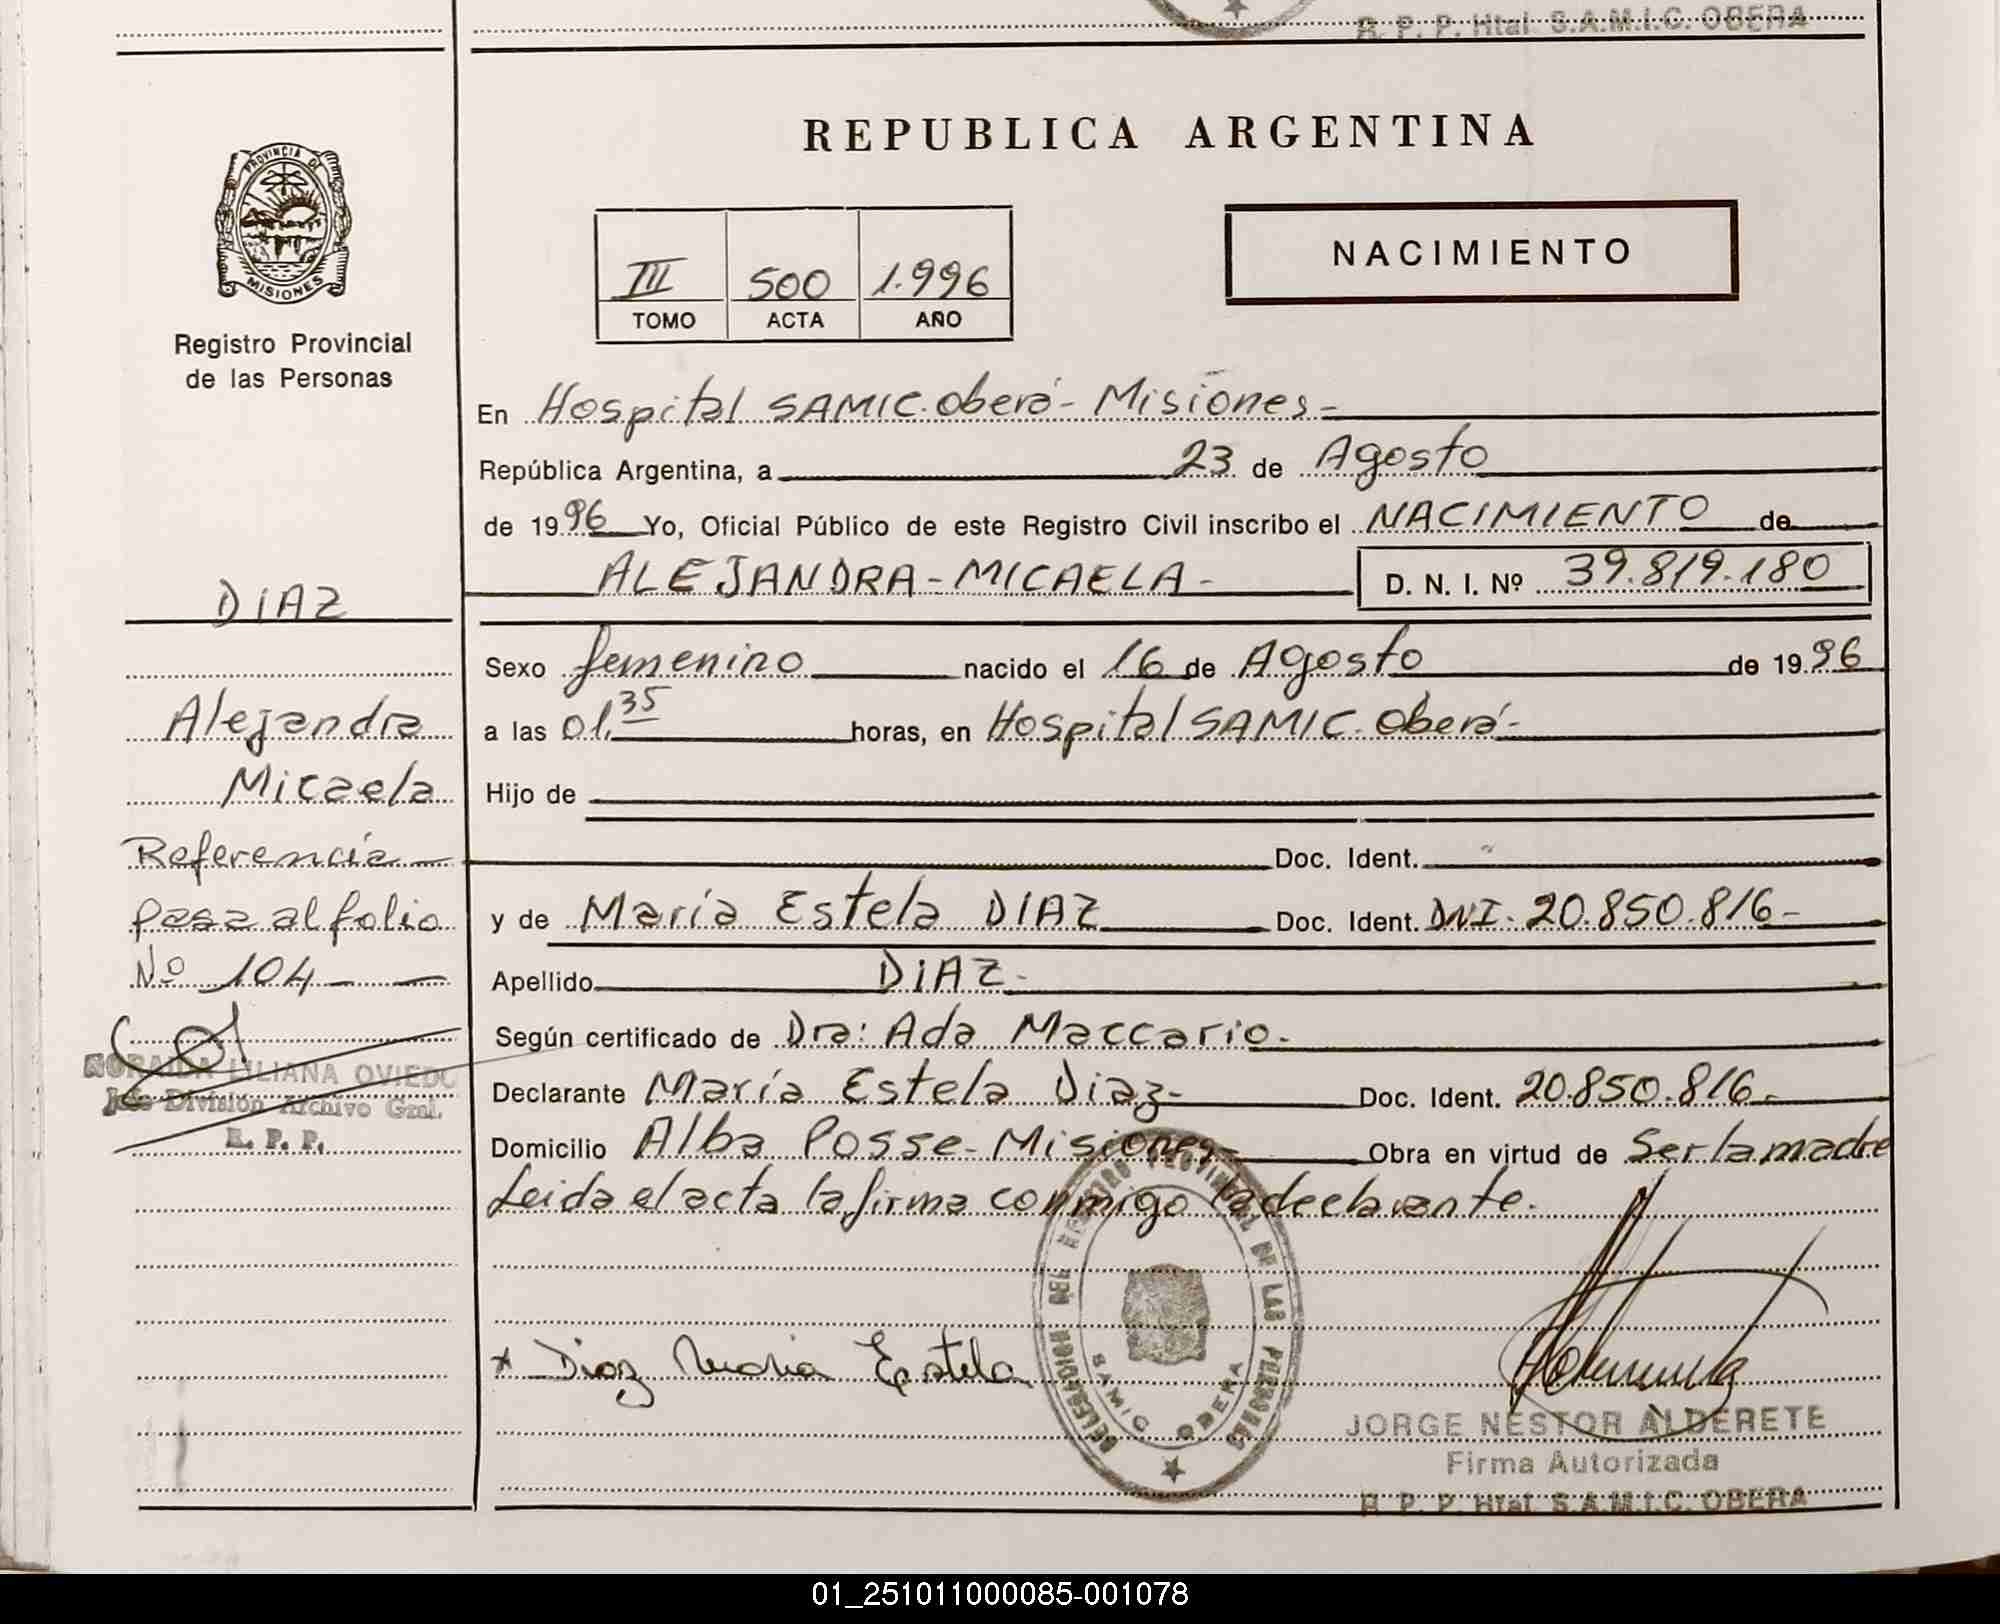 R. P. P. Htal. S.A.M.I.C. OBERA
REPUBLICA ARGENTINA
PROVINCIA DE
MISIONES
Registro Provincial
de las Personas
III 500 1.996
TOMO ACTA AÑO
NACIMIENTO
En Hospital SAMIC. Oberá - Misiones -
República Argentina, a 23 de Agosto
de 1996 Yo, Oficial Público de este Registro Civil inscribo el NACIMIENTO de
ALEJANDRA - MICAELA - D. N. I. Nº 39.819.180
DIAZ
Sexo femenino nacido el 16 de Agosto de 1996
Alejandra
a las 01,35 horas, en Hospital SAMIC. Oberá -
Micaela
Hijo de
Referencia
Doc. Ident.
pasa al folio
y de María Estela DIAZ Doc. Ident. DNI. 20.850.816 -
Nº 104
Apellido DIAZ -
Según certificado de Dra: Ada Maccario -
LILIANA OVIEDO
Jefe División Archivo Gral.
R. P. P.
Declarante María Estela Diaz - Doc. Ident. 20.850.816 -
Domicilio Alba Posse - Misiones - Obra en virtud de Ser la madre
Leida el acta la firma conmigo la declarante.
DELEGACION DEL REGISTRO PROVINCIAL DE LAS PERSONAS
SAMIC OBERA
x Diaz Maria Estela
JORGE NESTOR ALDERETE
Firma Autorizada
R. P. P. Htal. S.A.M.I.C. OBERA
01_251011000085-001078